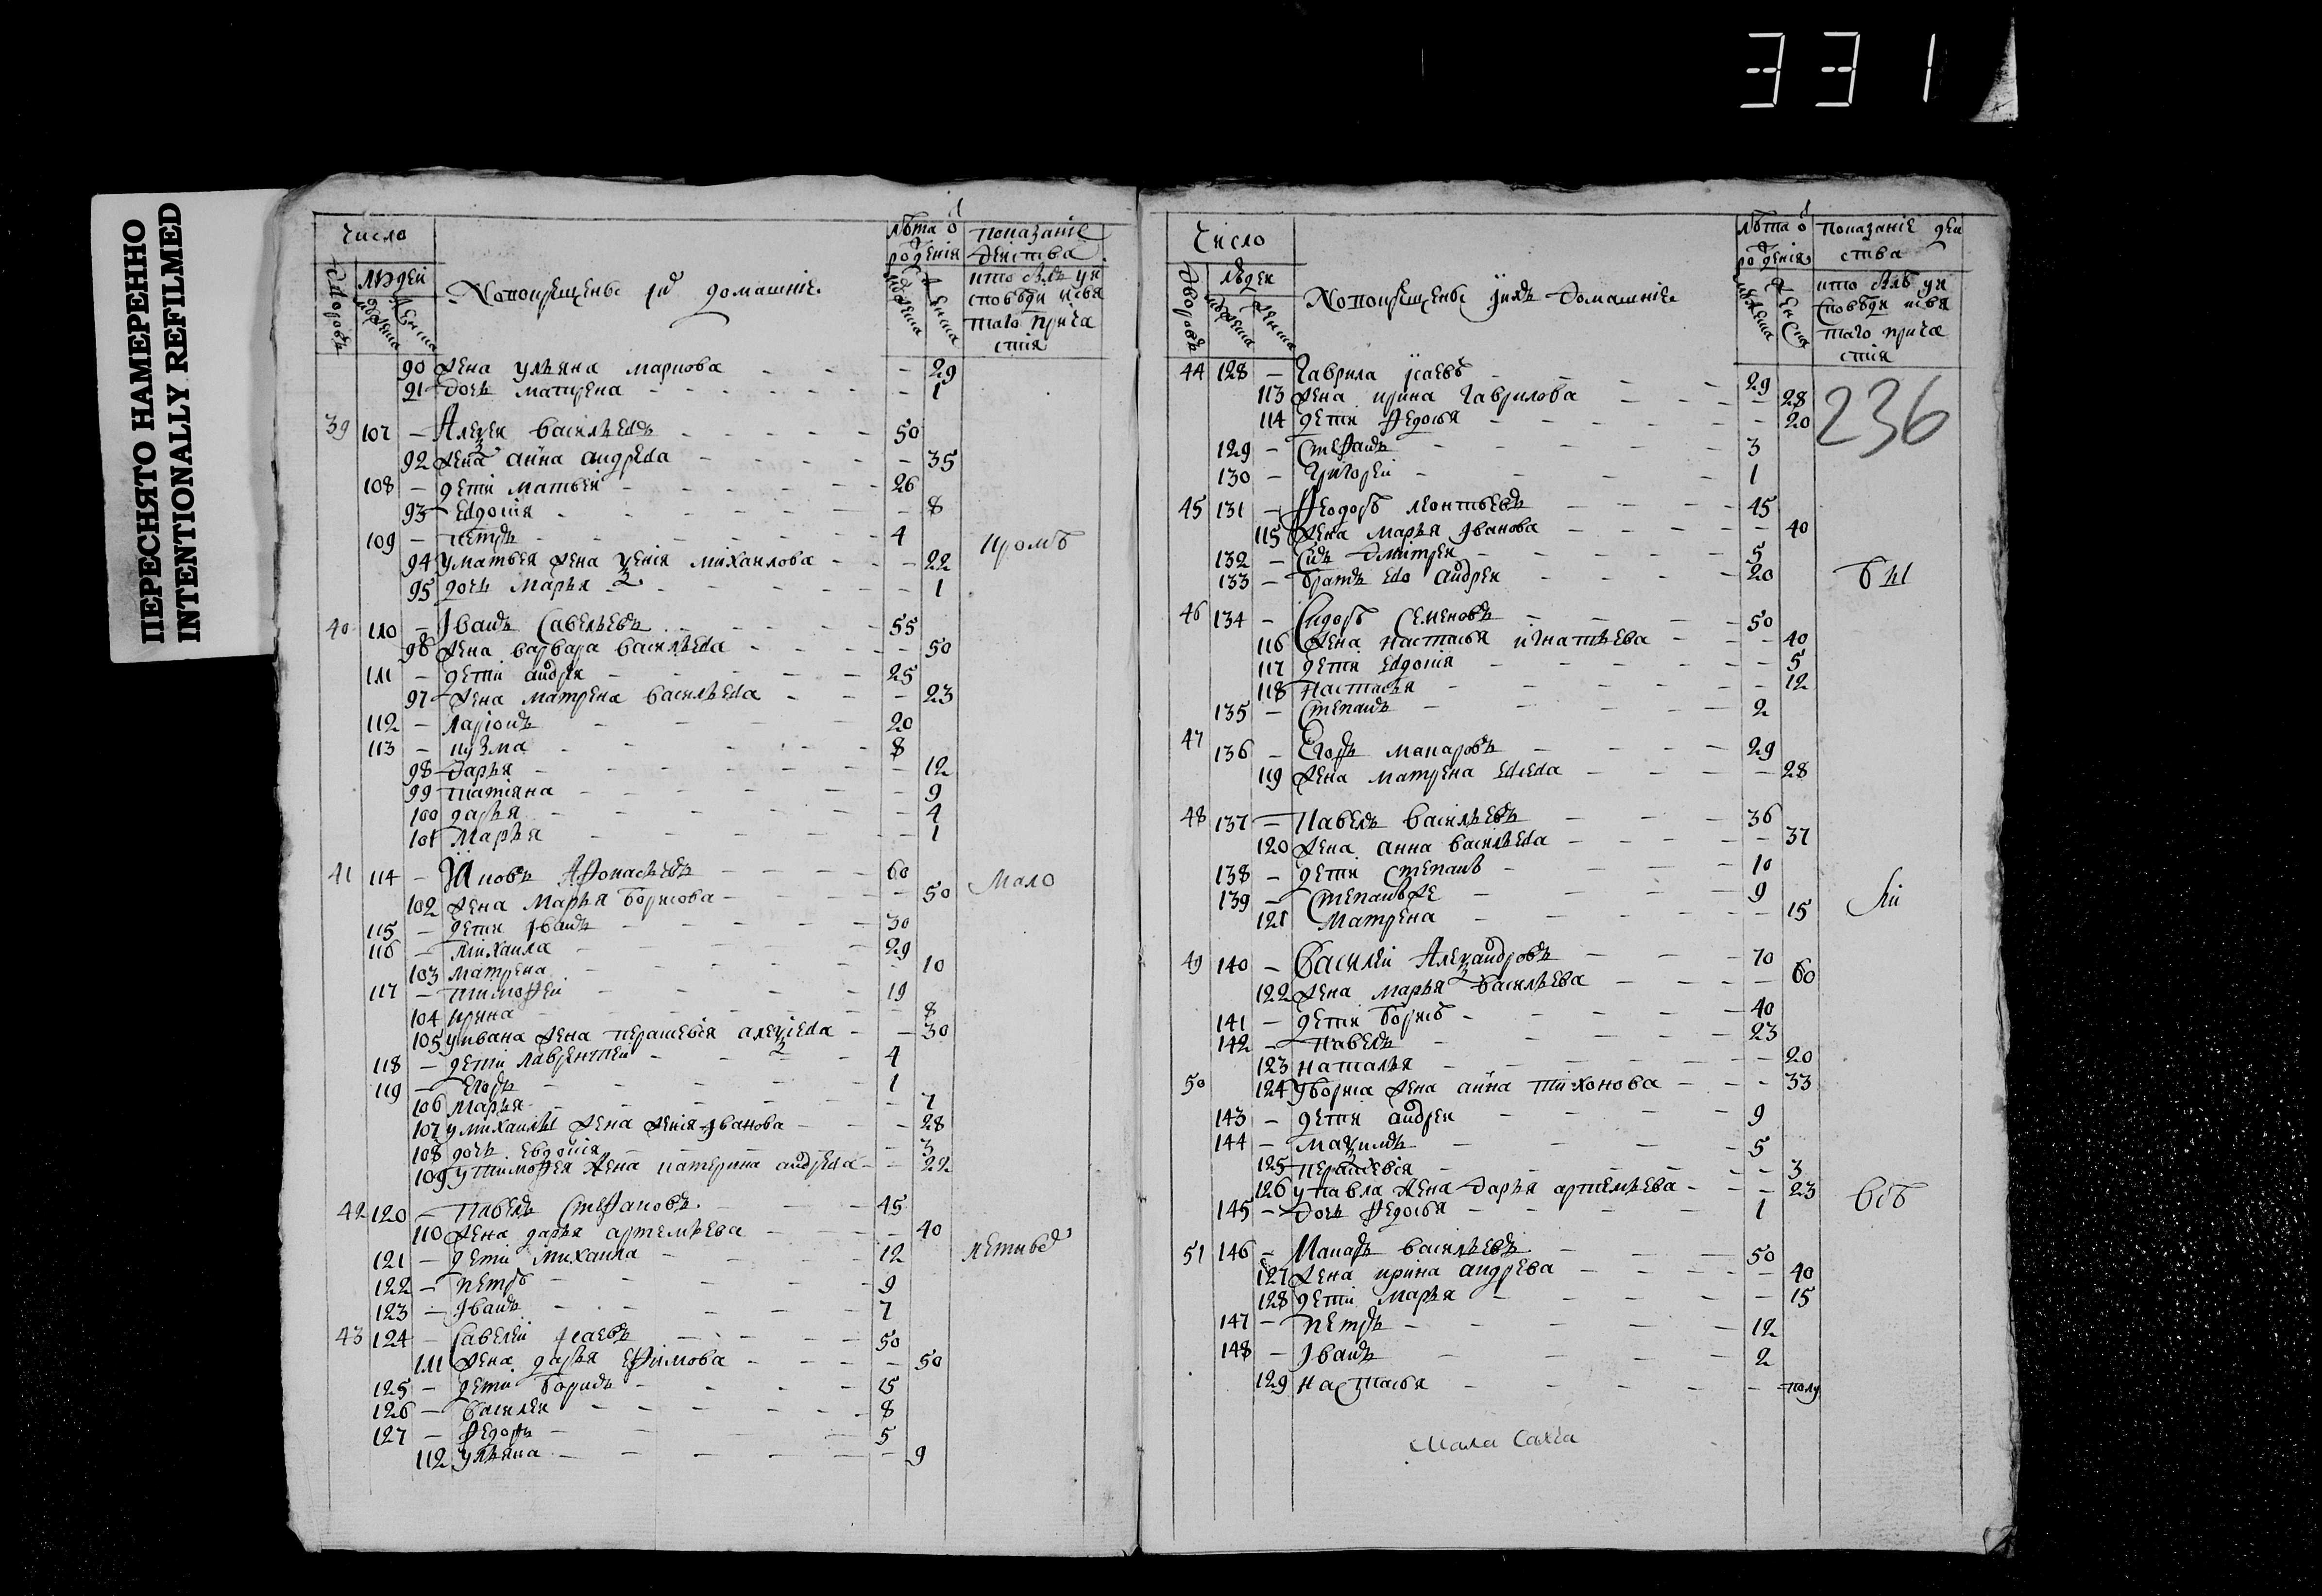 331
ПЕРЕСНЯТО НАМЕРЕННО
INTENTIONALLY REFILMED
Число
людей
Новокрещены и домашніе
лѣта ѿ рожденія
показаніе действа
кто былъ у исповѣди и святаго причастія
90 жена ульяна маркова - 29
91 дочь матрена - 1
39 107 - Алексеи васильевъ - 50
92 жена анна андреева - 35
108 - дети матвеи - 26
93 евдокия - 8
109 - петръ - 4
кромѣ
94 у матвея жена ксенія михаилова - 22
95 дочь марья - 1
40 110 - Іванъ Савельевъ - 55
96 жена варвара васильева - 50
111 - дети андреи - 25
97 жена матрена васильева - 23
112 - ларіонъ - 20
113 - кузма - 8
98 дарья - 12
99 татіяна - 9
100 дарья - 4
101 марья - 1
41 114 - Яковъ Афонасьевъ - 60
мало
102 жена марья борисова - 50
115 - дети Іванъ - 30
116 - михаила - 29
103 матрена - 10
117 - тимофеи - 19
104 ирина - 8
105 у ивана жена параскевія алексіева - 30
118 - дети лаврентеи - 4
119 - Егоръ - 1
106 марья - 7
107 у михаилы жена ксенія іванова - 28
108 дочь евдокія - 3
109 у тимофея жена катерина андреева - 22
42 120 - Павелъ Стефановъ - 45
110 жена дарья артемьева - 40
121 - дети михаила - 12
122 - петръ - 9
123 - Іванъ - 7
43 124 - Савелеи Ісаевъ - 50
111 жена дарья ефимова - 50
125 - дети борисъ - 15
126 - василеи - 8
127 - федоръ - 5
112 ульяна - 9
Число
дворовъ
людеи
Новокрещены и ихъ домашніе
лѣта ѿ рожденія
показаніе действа
кто былъ у исповѣди и святаго причастія
236
44 128 - Гаврила ісаевъ - 29
113 жена ирина гаврилова - 28
114 дети федосья - 20
129 - Стефанъ - 3
130 - Григореи - 1
45 131 - Феодоръ леонтьевъ - 45
115 жена марья Іванова - 40
132 - Сынъ дмитреи - 5
133 - братъ ево андреи - 20
бы
46 134 - Сидоръ Семеновъ - 50
116 жена настасья игнатьева - 40
117 дети евдокия - 5
118 настасья - 12
135 - Степанъ - 2
47 136 - Егоръ макаровъ - 29
119 жена матрена - 28
48 137 - Павелъ васильевъ - 36
120 жена анна васильева - 37
138 - дети степанъ - 10
139 - степанъ же - 9
121 матрена - 15
49 140 - Василеи Александровъ - 70
122 жена марья васильева - 60
141 - дети борисъ - 40
142 - павелъ - 23
123 наталья - 20
50 124 у бориса жена анна тихонова - 33
143 - дети андреи - 9
144 - максимъ - 5
125 параскевія - 3
126 у павла жена дарья артемьева - 23
145 - дочь федосья - 1
всѣ
51 146 - Макаръ васильевъ - 50
127 жена ирина андреева - 40
128 дети марья - 15
147 - петръ - 12
148 - Іванъ - 2
129 настасья - полу